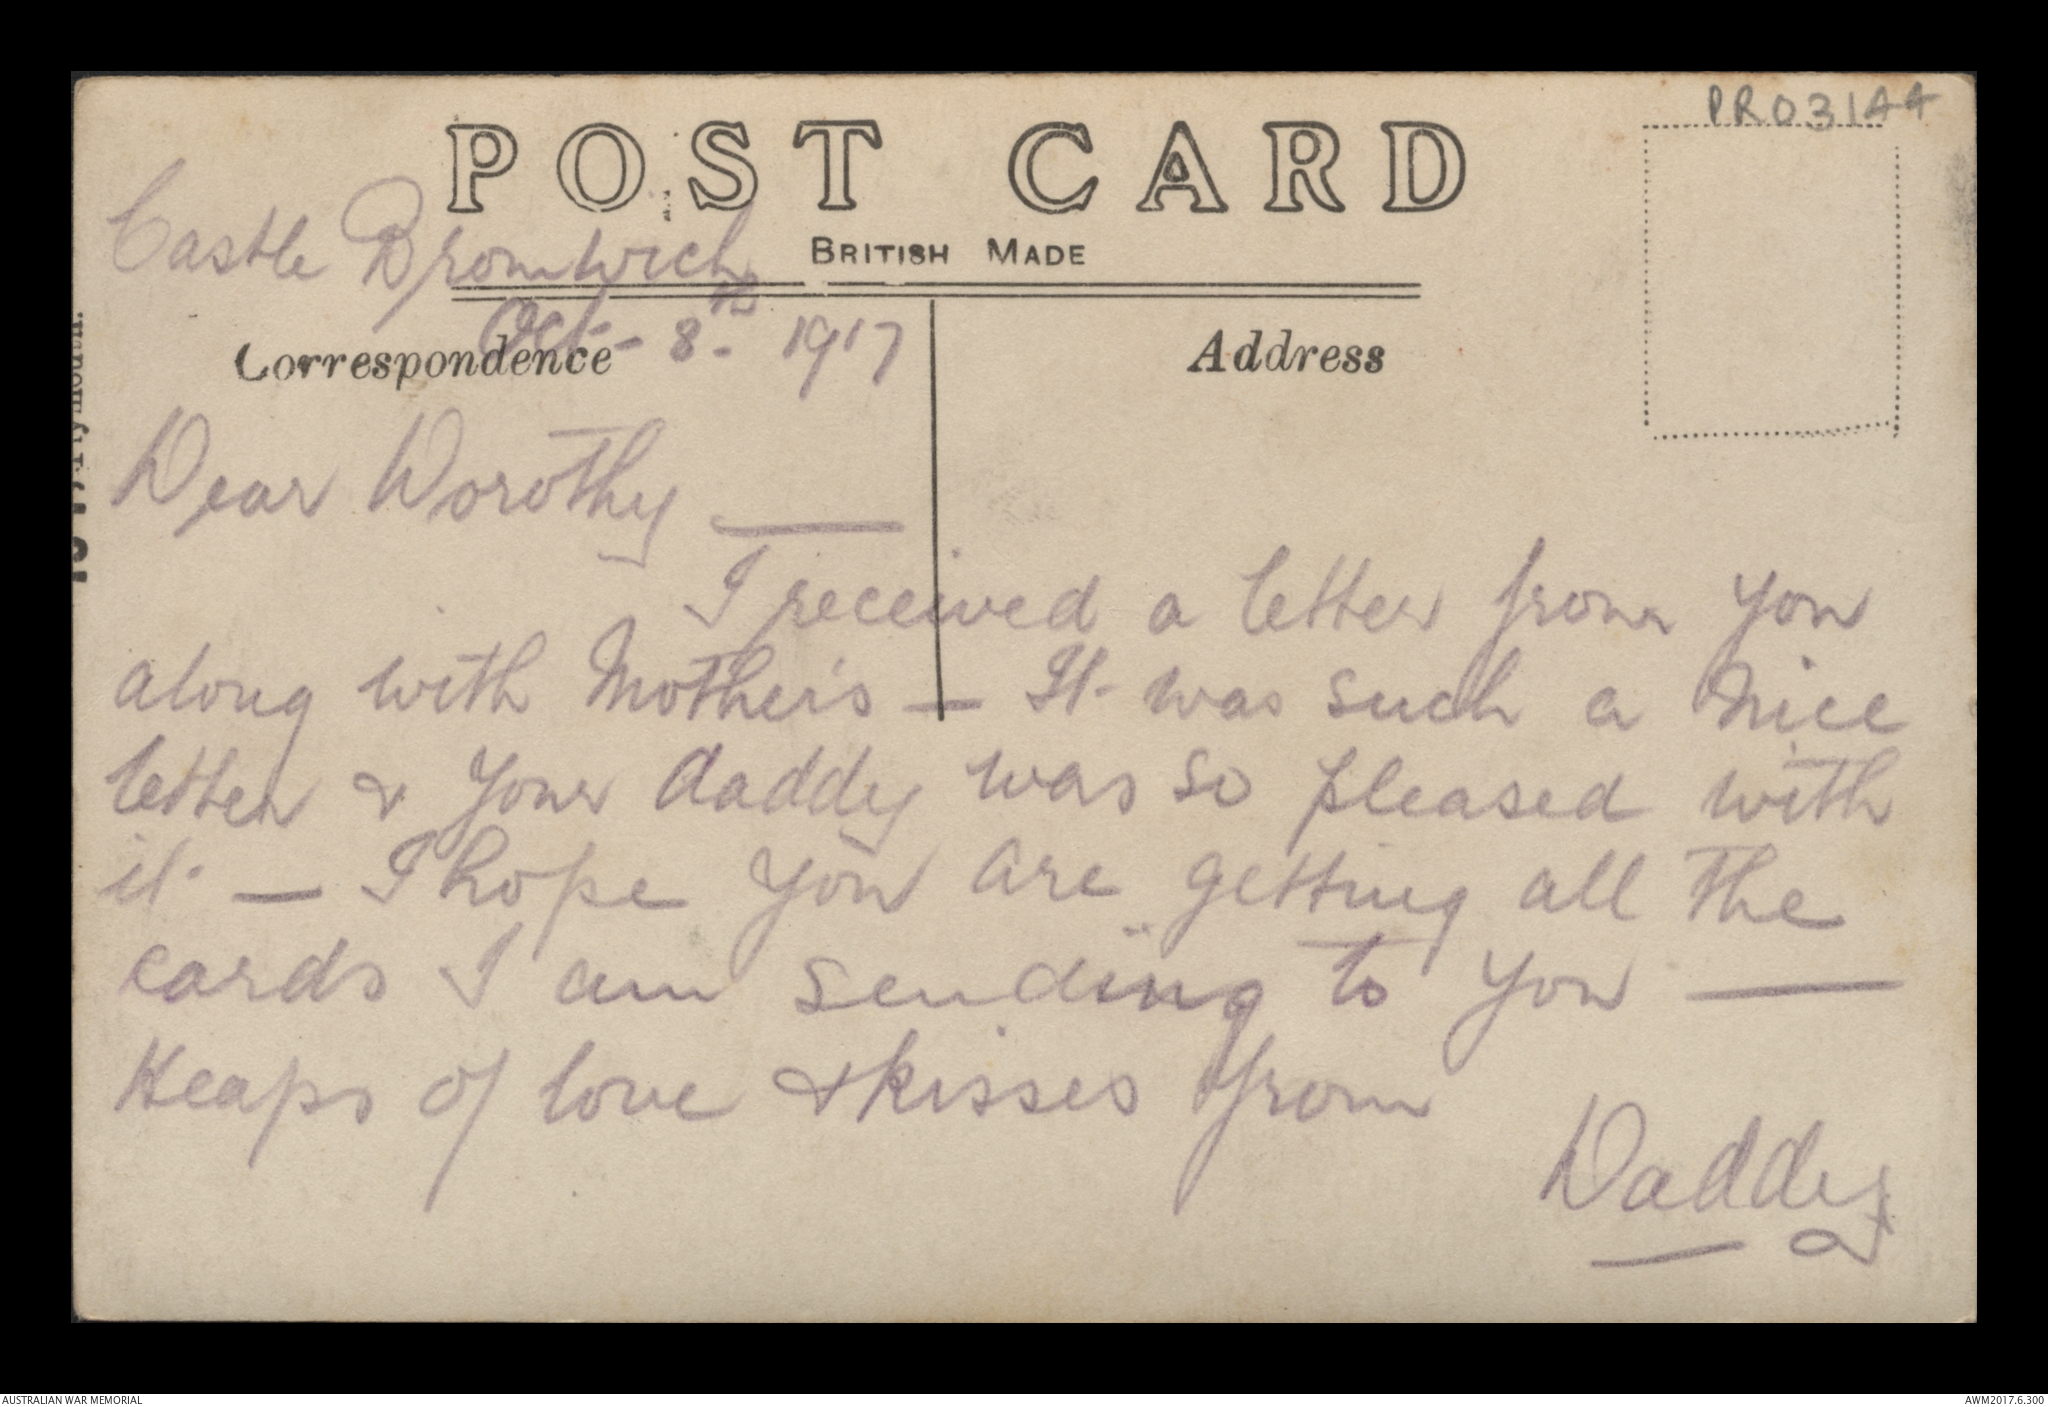 PR03144
POST CARD
BRITISH MADE
Castle Bromwich
Oct - 8th - 1917
Correspondence
Address
Dear Dorothy —
I received a letter from you
along with Mother's — It was such a nice
letter & your daddy was so pleased with
it — I hope you are getting all the
cards I am sending to you —
Heaps of love & kisses from
Daddy
Plymouth.
AUSTRALIAN WAR MEMORIAL
AWM2017.6.300